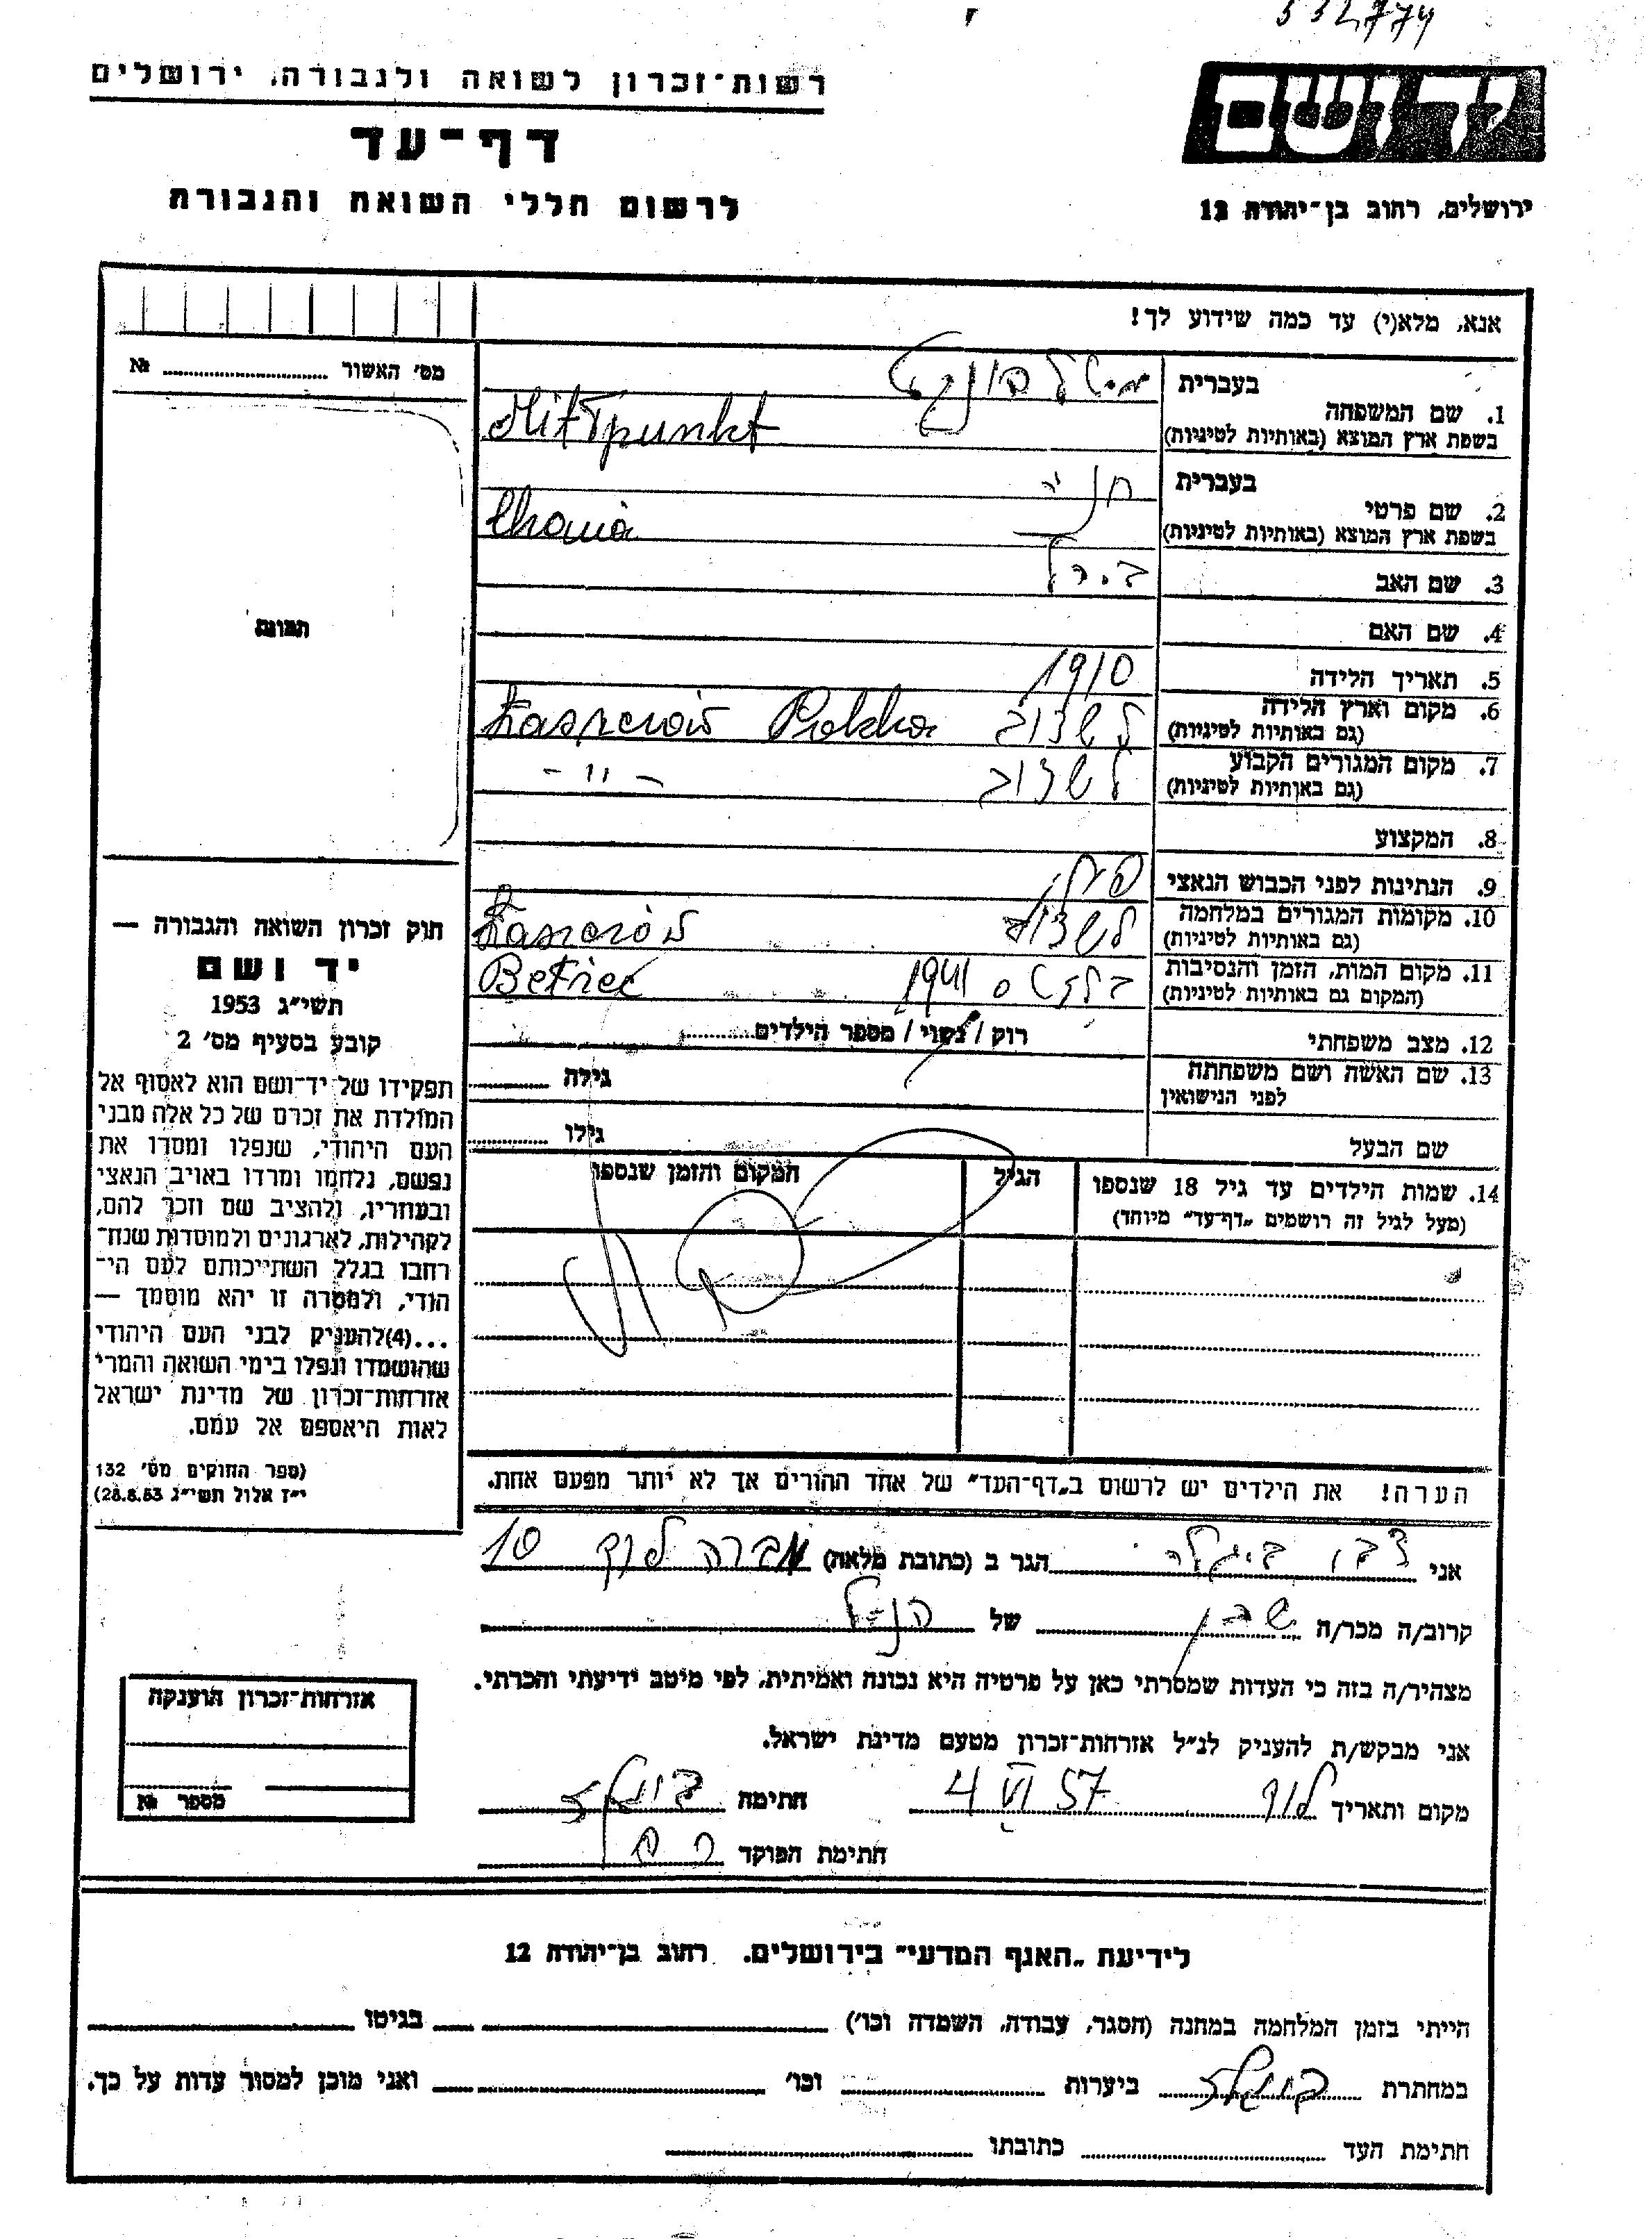 532774
רשות-זכרון לשואה ולגבורה, ירושלים
דף-עד
לרשום חללי השואה והגבורה
ירושלים, רחוב בן-יהודה 12
אנא, מלא(י) עד כמה שידוע לך!
מס' האשור № 
1. שם המשפחה
בעברית מיטלפונקט
בשפת ארץ המוצא (באותיות לטיניות) Mittpunkt
2. שם פרטי
בעברית חניה
בשפת ארץ המוצא (באותיות לטיניות) Chania
3. שם האב
4. שם האם
5. תאריך הלידה 1910
6. מקום וארץ הלידה לשצוב Łaszczów Polska
(גם באותיות לטיניות)
7. מקום המגורים הקבוע לשצוב – " –
(גם באותיות לטיניות)
8. המקצוע
9. הנתינות לפני הכבוש הנאצי
10. מקומות המגורים במלחמה לשצוב Łaszczów
(גם באותיות לטיניות)
11. מקום המות, הזמן והנסיבות 1941 Bełżec
(המקום גם באותיות לטיניות)
12. מצב משפחתי רוק / נשוי / מספר הילדים
13. שם האשה ושם משפחתה גילה
לפני הנישואין
שם הבעל גילו
14. שמות הילדים עד גיל 18 שנספו הגיל המקום והזמן שנספו
(מעל לגיל זה רושמים "דף-עד" מיוחד)
תמונה
חוק זכרון השואה והגבורה —
יד ושם
תשי"ג 1953
קובע בסעיף מס' 2
תפקידו של יד-ושם הוא לאסוף אל
המולדת את זכרם של כל אלה מבני
העם היהודי, שנפלו ומסרו את
נפשם, נלחמו ומרדו באויב הנאצי
ובעוזריו, ולהציב שם וזכר להם,
לקהילות, לארגונים ולמוסדות שנח-
רבו בגלל השתייכותם לעם הי-
הודי, ולמטרה זו יהא מוסמך —
...(4)להעניק לבני העם היהודי
שהושמדו ונפלו בימי השואה והמרי
אזרחות-זכרון של מדינת ישראל
לאות היאספם אל עמם.
(ספר החוקים מס' 132
י"ז אלול תשי"ג 28.8.53)
הערה! את הילדים יש לרשום ב"דף-העד" של אחד ההורים אך לא יותר מפעם אחת.
אני הגר ב (כתובת מלאה) 10
קרוב/ה מכר/ה שכן של הנ"ל
מצהיר/ה בזה כי העדות שמסרתי כאן על פרטיה היא נכונה ואמיתית, לפי מיטב ידיעתי והכרתי.
אני מבקש/ת להעניק לנ"ל אזרחות-זכרון מטעם מדינת ישראל.
מקום ותאריך לוד 4 VI 57 חתימה
חתימת הפוקד
אזרחות-זכרון הוענקה
מספר №
לידיעת "האגף המדעי" בירושלים. רחוב בן-יהודה 12
הייתי בזמן המלחמה במחנה (הסגר, עבודה, השמדה וכו') בגיטו
במחתרת ביערות וכו' ואני מוכן למסור עדות על כך.
חתימת העד כתובתו